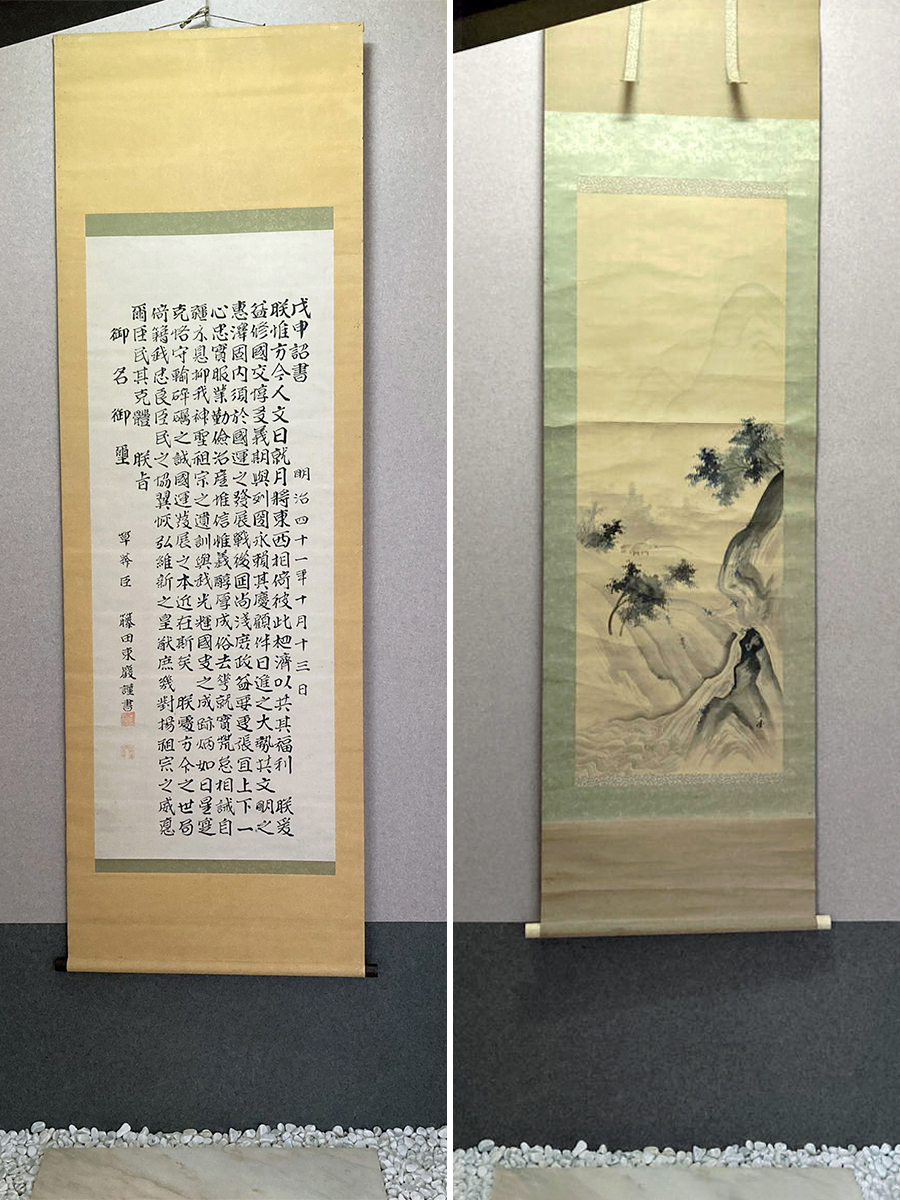 戊申詔書
明治四十一年十月十三日
朕惟方今人文日就月將東西相倚彼此相濟以共其福利　朕爰
益修國交惇友義期與列國永賴其慶顧伴日進之大勢共文明之
惠澤固内須於國運之發展戰後日尚淺庶政益要更張宜上下一
心忠實服業勤儉治産惟信惟義醇厚成俗去華就實荒怠相誡自
彊不息抑我神聖祖宗之遺訓與我光輝國史之成跡炳如日星寔
克恪守輸淬礪之誠國運發展之本近在斯矣　朕處方今之世局
倚籍我忠良臣民之協翼恢弘維新之皇猷庶幾對揚祖宗之威悳
爾臣民其克體　朕旨
御名御璽
草莽臣　藤田東巖謹書